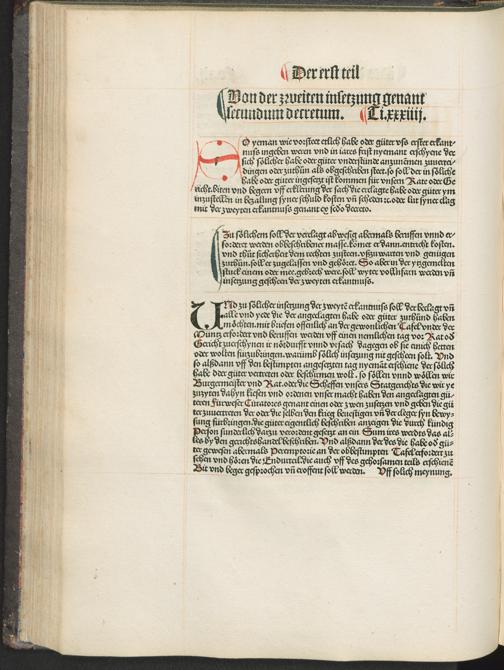 Der erst teil
Von der zweiten insetzung genant
secundum decretum. Ti.xxxiiij.
SO yeman wie vorsteet etlich habe oder güter vß erster erkant-
nuß ingeben weren vnd in iares frist nyemant erschyene der
sich sölicher habe oder güter vnderstünde anzunemen zuuerte-
dingen oder zuthün als obgeschriben steet. so soll der in söliche
habe oder güter ingesetzt ist kommen für vnsern Rat oder Ge
richt. biten vnd begern vff erklerung der sach die erclagte habe oder güter ym
inzustellen in bezallung syner schuld kosten vñ scheden ꝛc. oder lut syner clag
mit der zweyten erkantnuß genant ex sc̄do decreto.
Zu sölichem soll der verclagt abwesig abermals beruffen vnnd er-
fordert werden obbeschribener masse. kömet er dann. entricht kosten.
vnd thüt sicherheit dem rechten zusteen. vßzuwarten vnd genügen
zuthün. soll er zugelassen vnd gehöret. So aber an der yzgemelten
stück einem oder mee. gebrech were. soll wyter vollnfarn werden vñ
insetzung gescheen der zweyten erkantnuß.
VNd zu sölicher insetzung der zweytē erkantnuß soll der beclagt vñ
alle vnd yede die der angeclagten habe oder güter zuthünd haben
möchten. mit briefen offenlich an der gewonlicher Tafel vnder der
Müntz erfordert vnd beruffen werden vff einen nemlichen tag vor Rat od̛
Gericht zuerschynen ir nördurfft vnnd vrsach dagegen ob sie eynich hetten
oder wolten fürzubringen. warumb sölich insetzung nit gescheen soll. Vnd
so alßdann vff den bestimpten angesetzten tag nyemāt erschiene der sölich
habe oder güter vertreten oder beschirmen woll. so söllen vnnd wöllen wir
Burgermeister vnd Rat. oder die Scheffen vnsers Statgerichts die wir ye
zuzyten dahyn kiesen vnd ordenen vnser macht haben den angeclagten gü-
teren Fürweser Curatores genant einen oder zwen zusetzen vnd geben die gü
ter zuuertreten der oder die selben den krieg beuestigen vñ der cleger syn bewy-
sung fürbringen. die güter eigentlich beschriben anzeigen die durch kündig
Person sunderlich darzu verordent gesetzt an ein Summ irs werds das al-
les by den gerichtshandel beschriben. Vnd alßdann der des die habe od̛ gü-
ter gewesen abermals Peremptorie an der obbestimpten Tafel erfordert zu
sehen vnd hören die Endurteil die auch vff des gehorsamen teils erschienē
Bit vnd beger gesprochen vñ eröffent soll werden. Vff solich meynung.